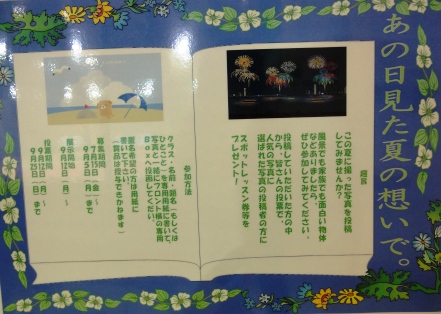 あの日見た夏の想いで。
趣旨
この夏に撮った写真を投稿
してみませんか？
風景でも家族でも面白い物体
などありましたら、
ぜひ参加してみてください。
投稿していただいた方の中
から、皆さんの投票で、
人気の写真に
選ばれた写真の投稿者の方に
スポットレッスン券等を
プレゼント！
参加方法
クラス・名前・題名・もしくは
ひとことを専用用紙に書いて、
写真と一緒にフロント横の専用
Boxへ投函してください。
匿名希望の方は用紙に
書いて下さい。
(賞品は授与できかねます)
募集期間
7月15日(金)～
9月5日(月)まで
展示開始
9月12日(月)～
投票期間
9月12日(月)～
9月25日(日)まで